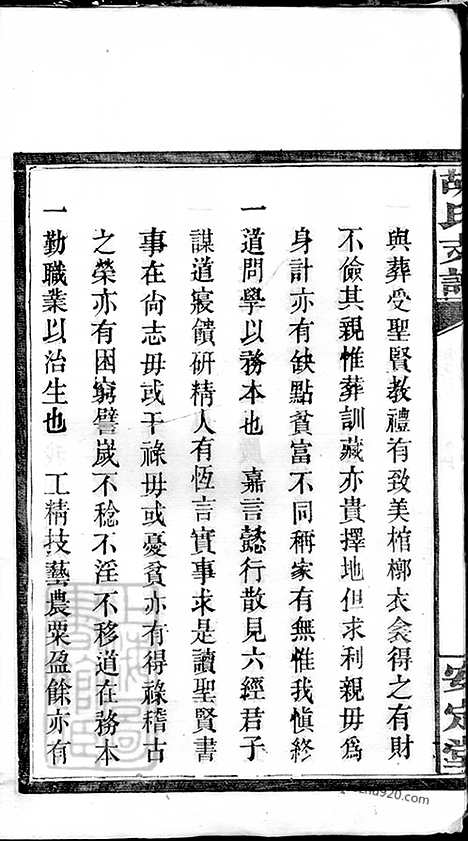 胡氏支譜
安定堂
與葬受聖賢教禮有致美棺槨衣衾得之有財
不儉其親惟葬訓藏亦貴擇地但求利親毋為
身計亦有缺點貧富不同稱家有無惟我愼終
一道問學以務本也　嘉言懿行散見六經君子
謀道寢饋研精人有恆言實事求是讀聖賢書
事在尙志毋或干祿毋或憂貧亦有得祿稽古
之榮亦有困窮譬歲不稔不淫不移道在務本
一勤職業以治生也　工精技藝農粟盈餘亦有